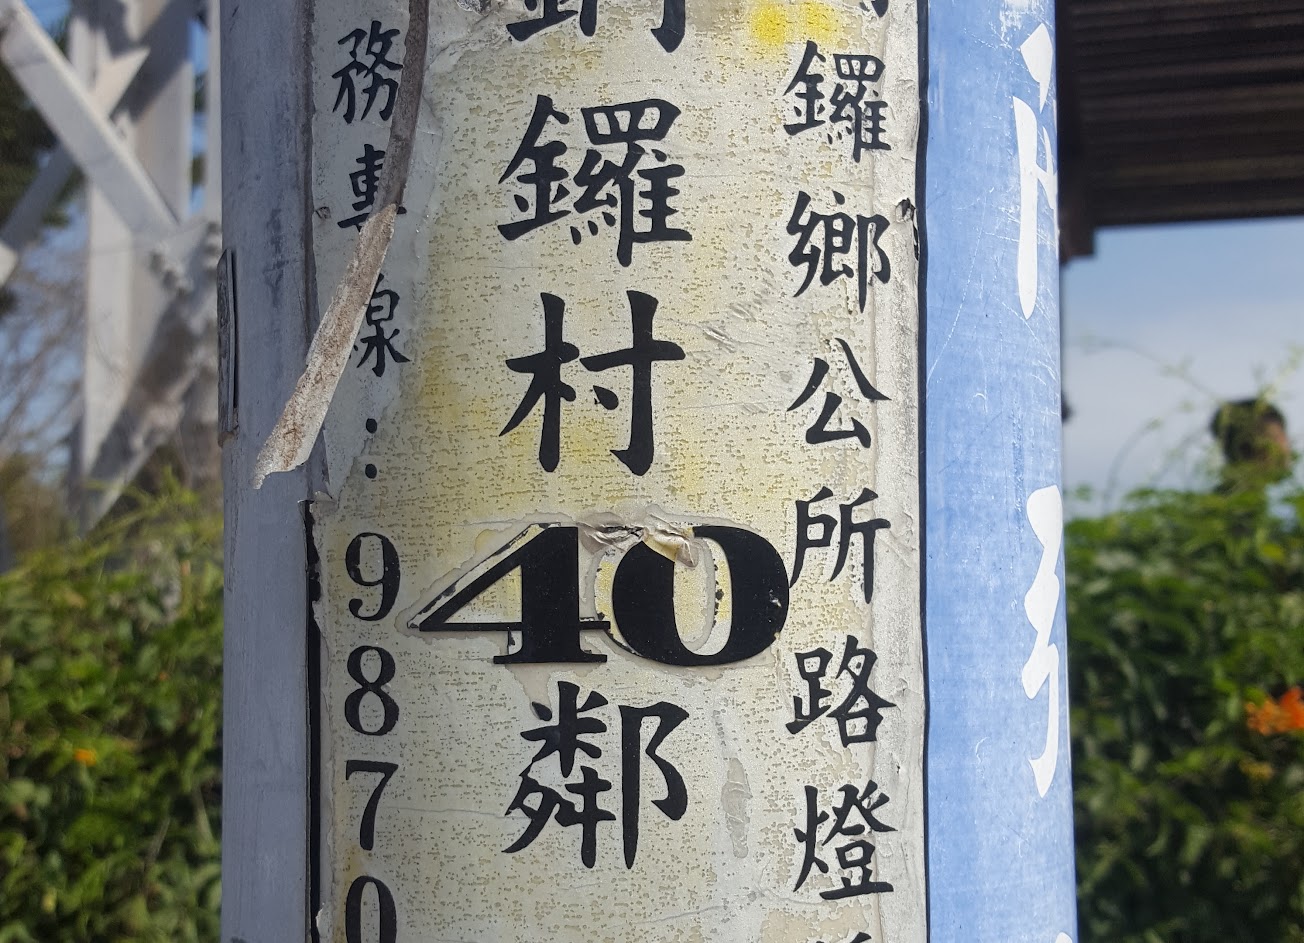 鑼鄉公所路燈
鑼村40鄰
務專線：9870